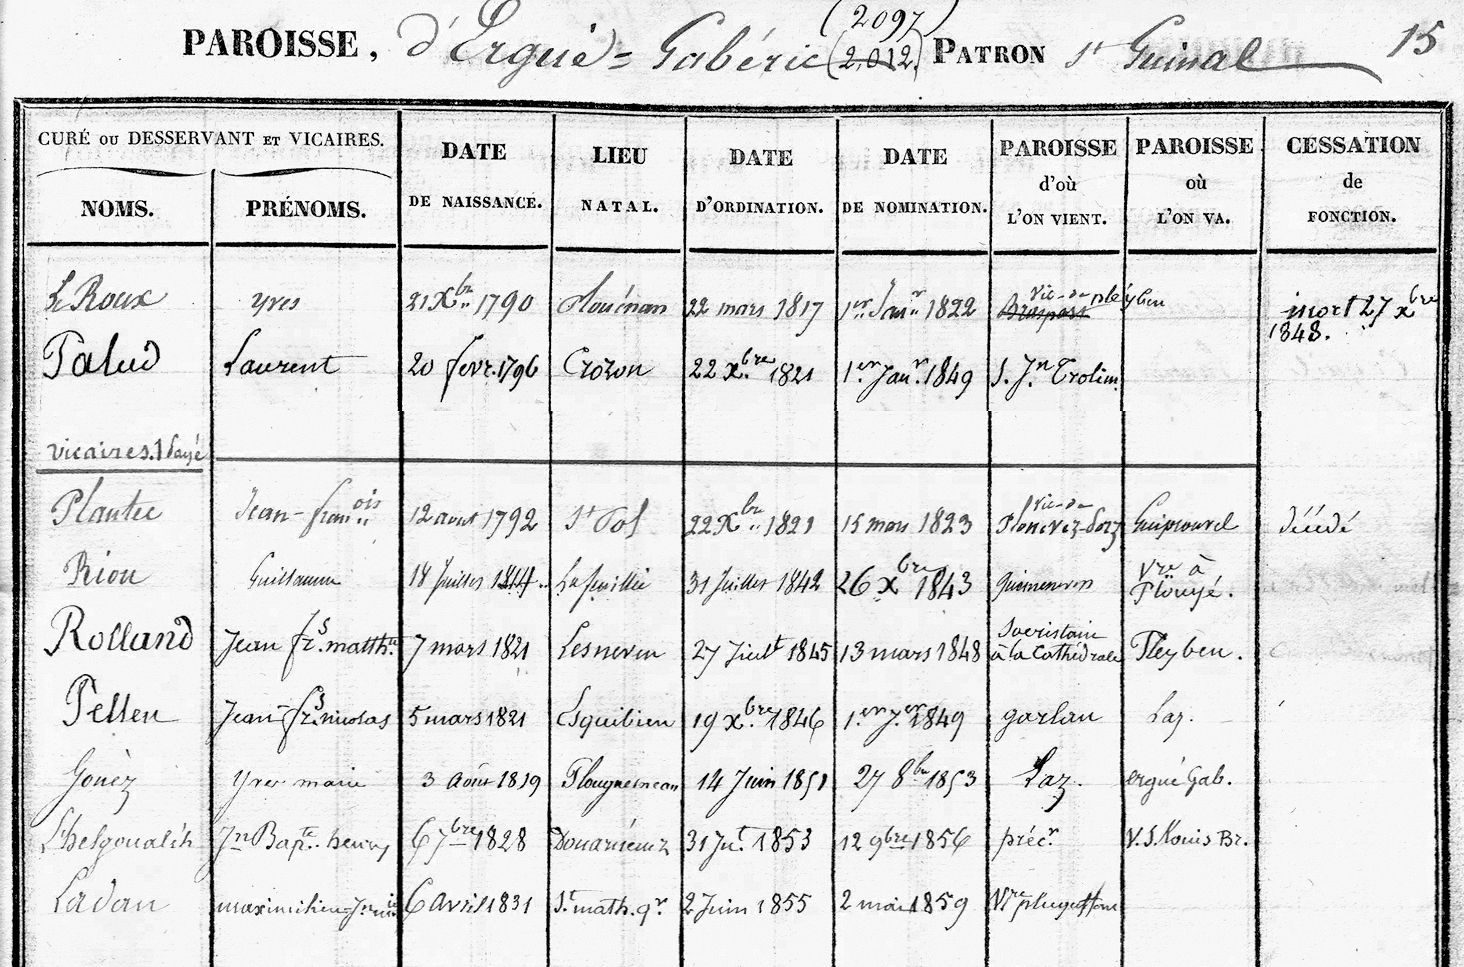 (2097)
PAROISSE, d'Ergué=Gabéric (2,012) PATRON St Guinal 15
CURÉ OU DESSERVANT ET VICAIRES.
NOMS. PRÉNOMS. DATE DE NAISSANCE. LIEU NATAL. DATE D'ORDINATION. DATE DE NOMINATION. PAROISSE d'où L'ON VIENT. PAROISSE où L'ON VA. CESSATION de FONCTION.
Le Roux Yves 21 Xbre 1790 Plouénan 22 mars 1817 1er Janr 1822 Vic. de pléyben Braspars mort 27 xbre 1848.
Palud Laurent 20 fevr. 1796 Crozon 22 xbre 1821 1er Janr. 1849 S. Jn Trolim.
vicaires. 1 payé
Plantec Jean-franois 12 aout 1792 St Pol 22 Xbre 1821 15 mars 1823 Vic. de Plonevez-porz Guipronvel décédé
Riou Guillaume 18 Juillet 1814 La feuillée 31 Juillet 1842 26 xbre 1843 guimenven Vre à Plouyé.
Rolland Jean frs. matth. 7 mars 1821 Lesneven 27 Juilt 1845 13 mars 1848 Sacristain à la Cathédrale Pleyben.
Pellen Jean-frs. nicolas 5 mars 1821 Esquibien 19 xbre 1846 1er J.er 1849 garlan Laz.
Gouèz Yves marie 3 Août 1819 Plouguerneau 14 Juin 1851 27 8bre 1853 Laz. ergué Gab.
L'helgoualc'h Jn Bapte. henry 6 7bre 1828 Douarnenez 31 Jt. 1853 12 9bre 1856 précr V. S. Louis Br.
Ladan maximilien= Jn mie 6 Avril 1831 St. math. qr. 2 Juin 1855 2 mai 1859 Vre pluguffan